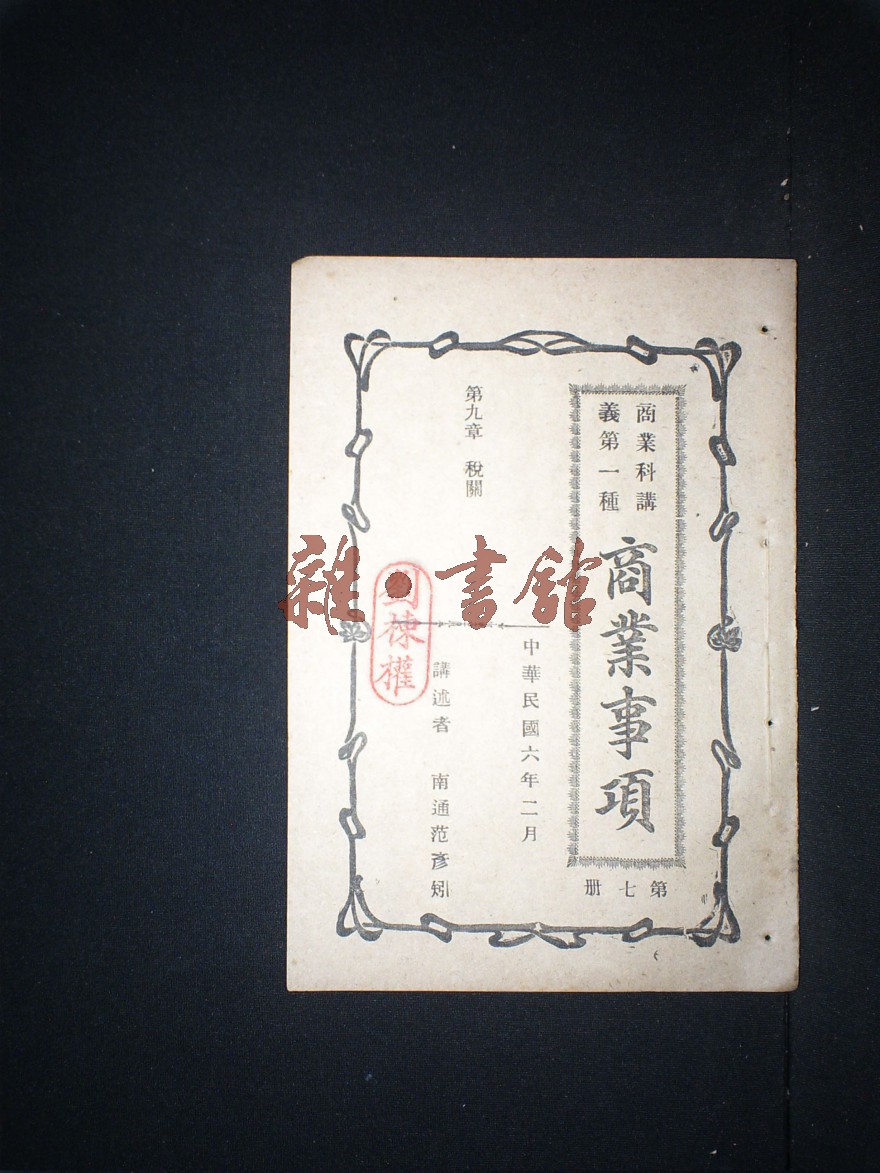 商業科講
義第一種
商業事項
第七册
中華民國六年二月
第九章　稅關
講述者　南通范彥矧
棟權
雜·書館